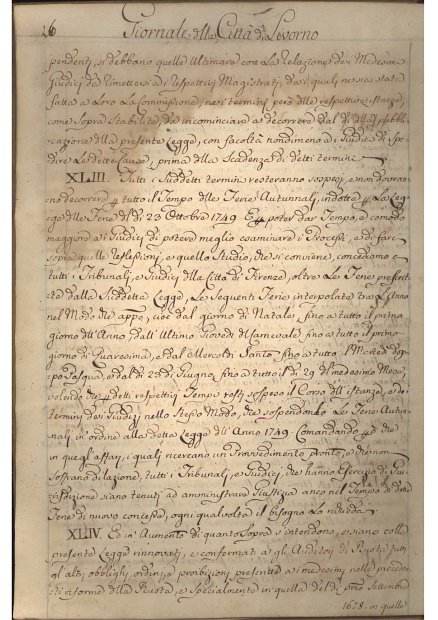 26 Giornale della Città di Livorno
pendenti, si debbano quelle Ultimare con La Relazione dei Medesimi
Giudici da Rimettersi ai Respettivi Magistrati, dai quali ne sia stata
fatta a Loro La Commissione, nei termini però delle respettive istanze,
come Sopra Stabilite, da incominciare a decorrere dal dì della pubbli-
cazione della presente Legge, con facoltà nondimeno ai Giudici di Spe-
dire Le dette Cause, prima della Scadenza di detti termini
XLIII. Tutti i Suddetti termini resteranno sospesi, e non dovran-
no decorrere tutto il Tempo delle Ferie Autunnali, indotte La Leg-
ge delle Ferie del dì 23 Ottobre 1749 E poter dar Tempo, e comodo
maggiore ai Giudici di potere meglio esaminare i Processi, e di fare
sopra quelle Reflessioni, e quello Studio, che si conviene, concediamo
tutti i Tribunali, e Giudici della Città di Firenze, oltre Le Ferie prescrit-
te dalla Suddetta Legge, Le Seguenti Ferie interpolate tra L'Anno
nel Modo che appo, cioè dal giorno di Natale, fino a tutto il primo
giorno dell'Anno, dall'Ultimo Giovedì di Carnevale fino a tutto il primo
giorno di Quaresima, e dal Mercoldì Santo fino a tutto il Martedì dop-
po Pasqua, e dal dì 23 di Giugno, fino a tutto il dì 29 del medesimo Mese,
volendo che detti respettivi Tempi resti sospeso il Corso dell'istanze, e dei
termini dei Giudizj nello Stesso Modo, che sospendono Le Ferie Autun-
nali in ordine alla detta Legge dell'Anno 1749. Comandando che
in quegli affari, i quali ricercano un Provvedimento pronto, e che non
soffrano dilazione, tutti i Tribunali, e Giudici, che hanno Esercizio di Giu-
risdizione siano tenuti ad amministrare Giustizia anco nel Tempo di dette
Ferie di nuovo concesse, ogni qualvolta il bisogno Lo richieda
XLIV. Ed in Aumento di quanto Sopra s'intendono, e siano colla
presente Legge rinnovati, e confermati a gli Auditori di Ruota tutti
gli alti, obblighi, ordini, e proibizioni prescritte ai medesimi nelle preceden-
ti riforme della Ruota, e Specialmente in quella del dì primo Settembre
1678. in quelle